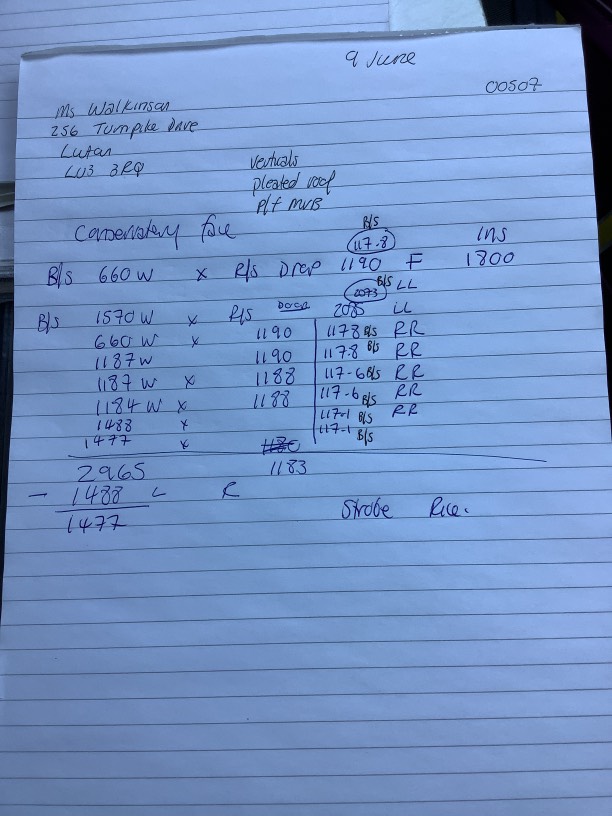 9 June
00507
Ms Walkinson
256 Turnpike Drive
Luton
LU3 3RQ
Verticals
pleated roof
P/f MVB
Conservatory
B/S
117-8
ins
B/s 660 W x R/s Drop 1190 F 1800
2073 B/S LL
B/s 1570 W x R/s Door 2085 LL
660 W x 1190 1178 B/S RR
1187 W 1190 117-8 B/S RR
1187 W x 1188 117-6 B/S RR
1184 W x 1188 117-6 B/S RR
1488 x 117-1 B/S RR
1477 x 1180 117-1 B/S
2965 1183
- 1488 L R
1477
Strobe Rice.